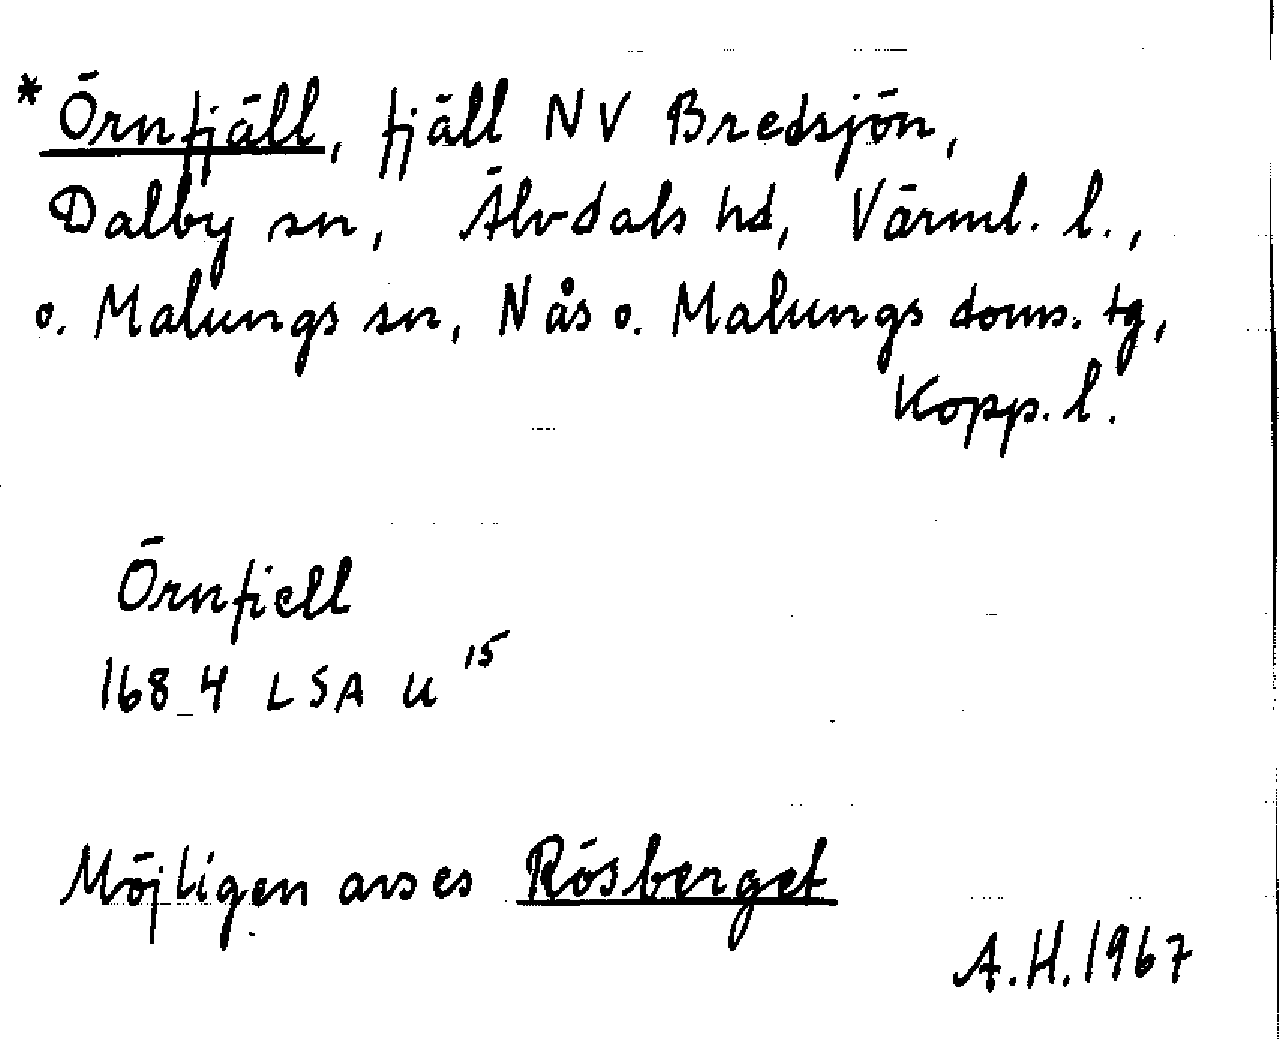 *Örnfjäll, fjäll NV Bredsjön,
Dalby sn, Älvdals hd, Värml. l.,
o. Malungs sn, Nås o. Malungs doms. tg,
Kopp. l.
Örnfiell
168_4 LSA U 15
Möjligen avses Rösberget
A.H. 1967